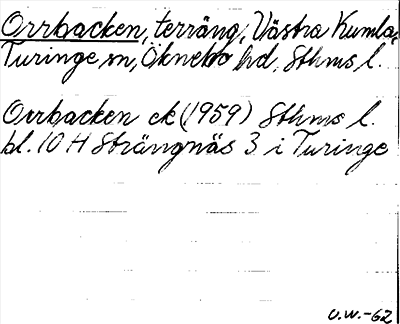 Orrbacken, terräng, Västra Kumla,
Turinge sn, Öknebo hd, Sthms l.
Orrbacken ek (1959) Sthms l.
bl. 10 H Strängnäs 3 i Turinge
U.W.-62